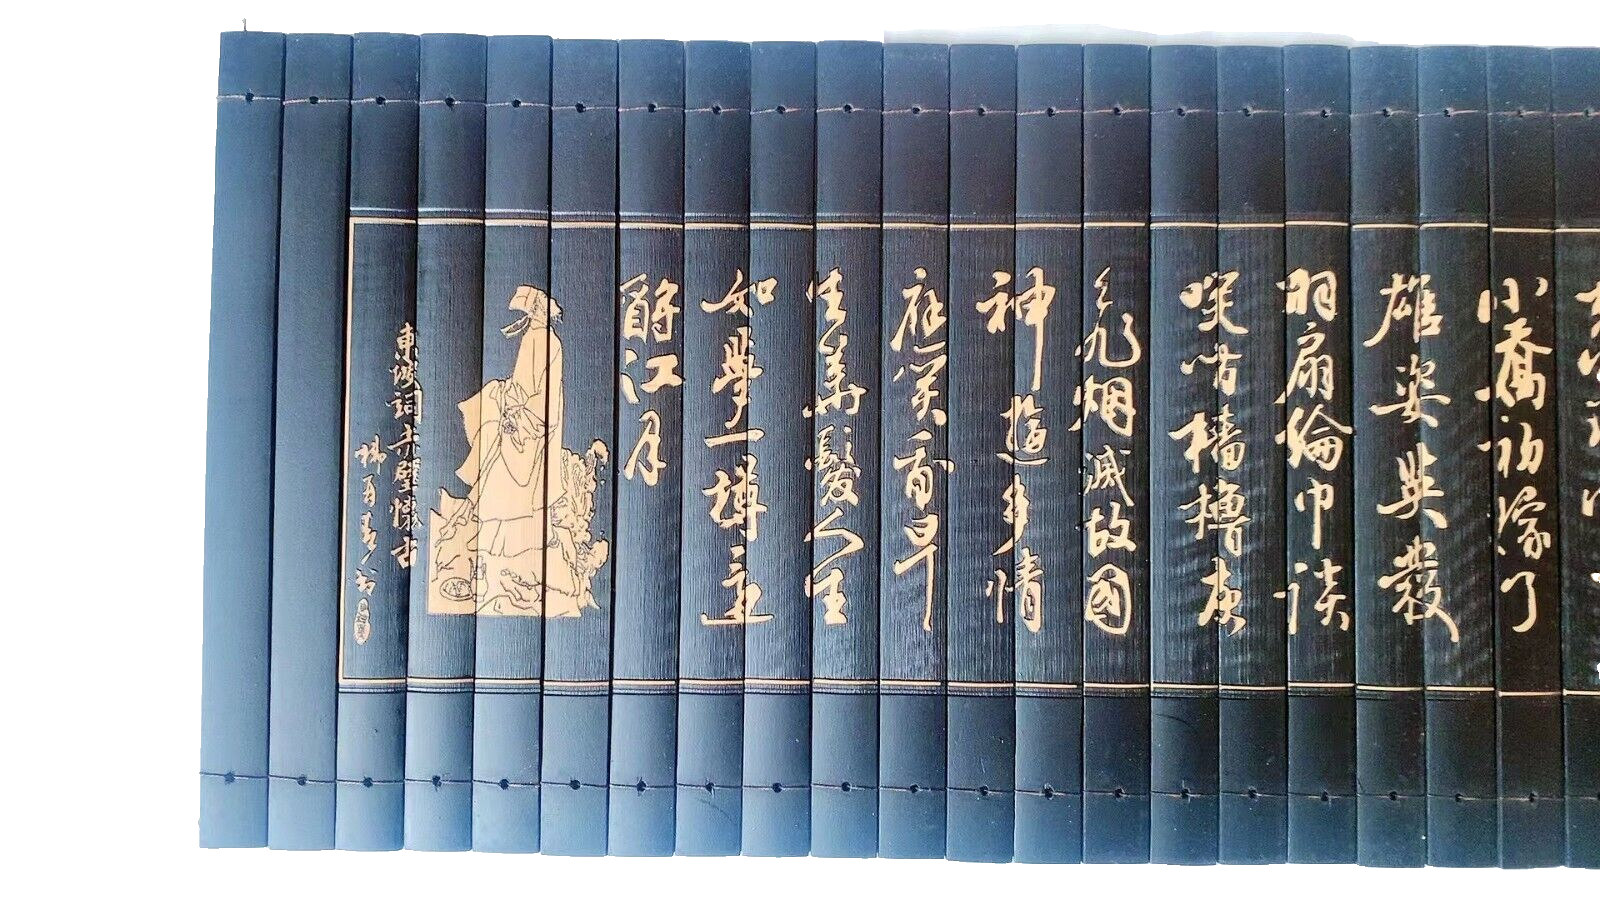 小喬初嫁了
雄姿英發
羽扇綸巾談
笑間檣櫓灰
飛烟滅故國
神遊多情
應笑我早
生華髮人生
如夢一樽還
酹江月
東坡詞赤壁懷古
楊再春書